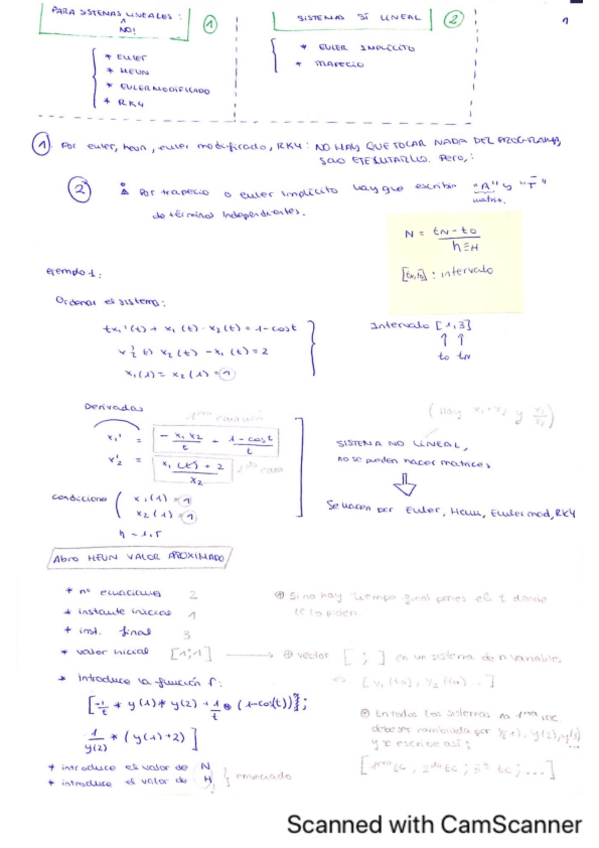 PARA SISTEMAS LINEALES:
NO!
1
SISTEMAS SÍ LINEAL
2
1
* EULER
* HEUN
* EULER MODIFICADO
* RK4
* EULER IMPLÍCITO
* TRAPECIO
1 Por euler, heun, euler modificado, RK4: NO HAY QUE TOCAR NADA DEL PROGRAMA,
SOLO EJECUTARLO. Pero,:
2 Por trapecio o euler implícito hay que escribir "A" y "T"
matriz.
de términos independientes.
N = tN - t0 / h≡H
[t0,tN] : intervalo
ejemplo 1:
Ordenar el sistema:
tx₁'(t) + x₁(t) · x₂(t) = 1 - cost
x₂'(t) x₂(t) - x₁(t) = 2
x₁(1) = x₂(1) = 1
Intervalo [1,3]
t0 tN
Derivadas
1ª ecuación
(Hay x₁·x₂ y x₁/x₂)
x₁' = - x₁ x₂ / t + 1 - cost / t
x₂' = x₁(t) + 2 / x₂
SISTEMA NO LINEAL,
no se pueden hacer matrices
condiciones
x₁(1) = 1
x₂(1) = 1
Se hacen por Euler, Heun, Euler mod, RK4
h = 1,5
Abro HEUN VALOR APROXIMADO
* nº ecuaciones 2
* instante inicial 1
* inst. final 3
* valor inicial [1;1] → vector [ ; ] en un sistema de n variables
Si no hay tiempo final pones el t donde
te lo piden.
[y₁(t0), y₂(t0)..]
* introduce la función f:
[-1/t * y(1) * y(2) + 1/t * (1-cos(t));
1/y(2) * (y(1)+2)]
En todos los sistemas la 1ª ec.
debe ser cambiada por y(1), y(2), y(3)
y se escribe así:
[1ª ec, 2ª ec; 3ª ec; ...]
* introduce el valor de N
* introduce el valor de H
enunciado
Scanned with CamScanner